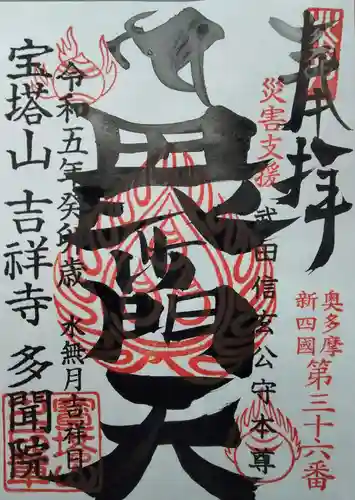 奉拝
災害支援
奥多摩
新四國
第三十六番
武田信玄公守本尊
毘沙門天
令和五年癸卯歳
水無月吉祥日
宝塔山吉祥寺多聞院